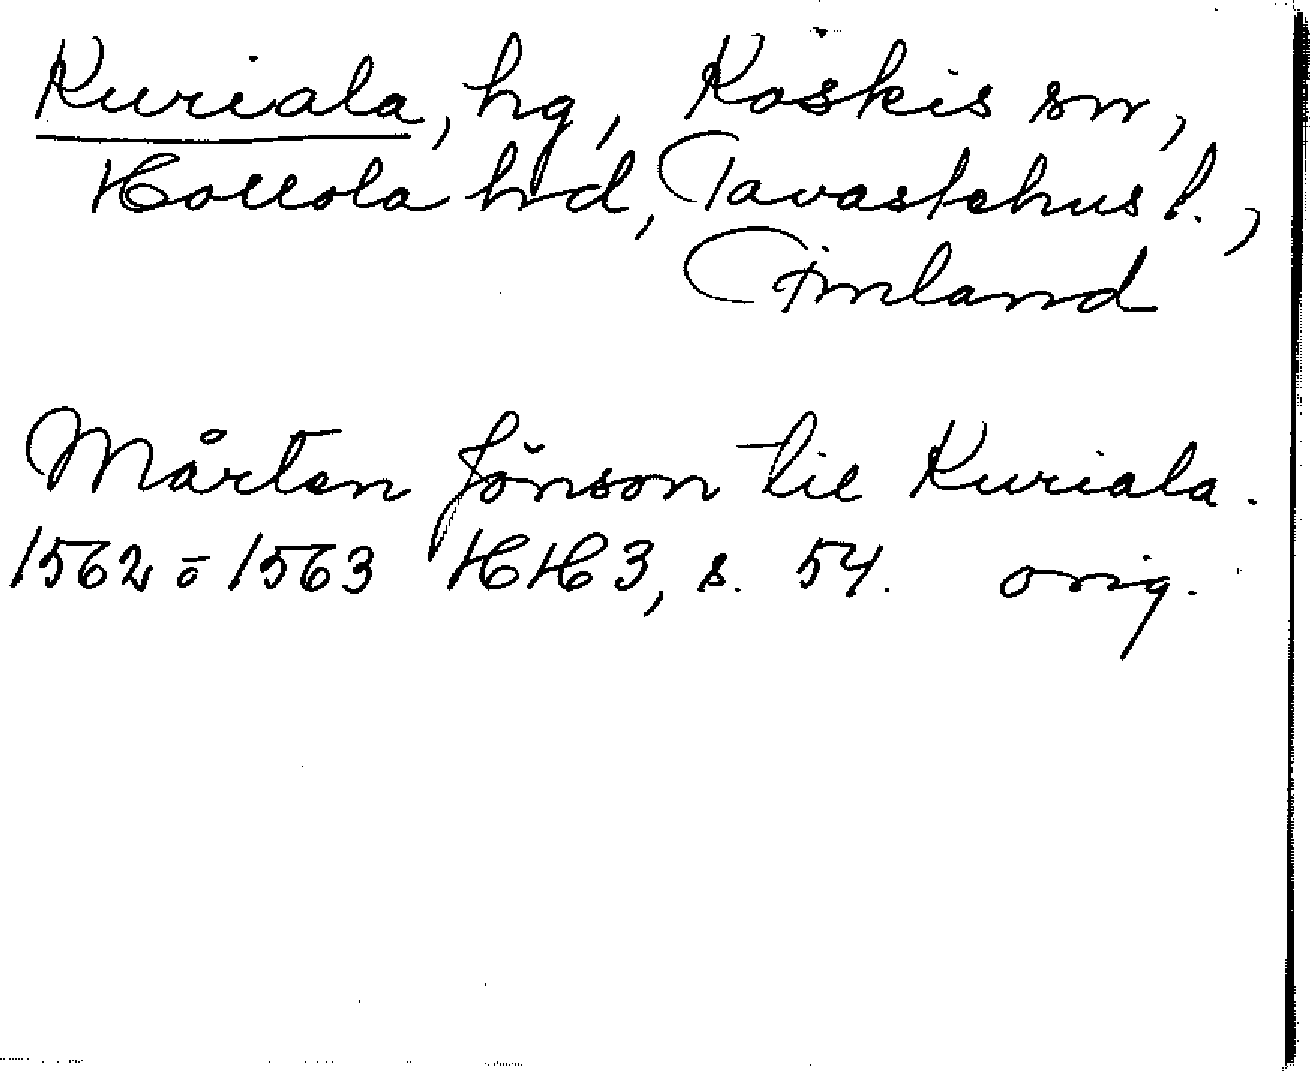 Kuriala, hg, Koskis sn,
Hollola hd, Tavastehus l.,
Finland
Mårten Jönson til Kuriala.
1562 ō 1563 HH 3, s. 54. orig.